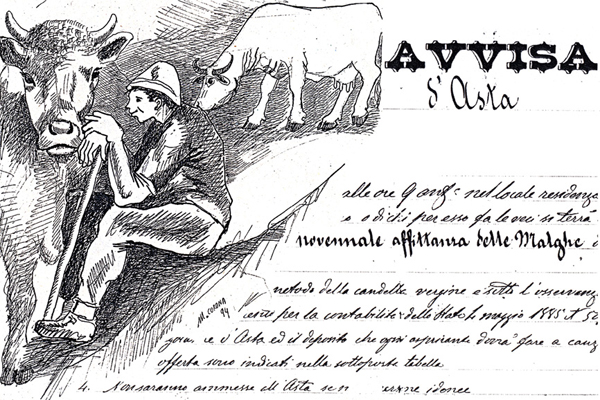 AVVISA
d'Asta
alle ore 9 antᵉ nel locale residenza
e o di chi per esso fa le veci si terrà
novennale affittanza delle Malghe d
metodo della candella vergine e sotto l'osservanz
per la contabilità dello Stato 4 maggio 1885 N 50
d'Asta ed il deposito che ogni aspirante dovrà fare a cauz
offerta sono indicati nella sottoposta tabella
4. Non saranno ammesse all'Asta se n idonee
M. CORONA
94